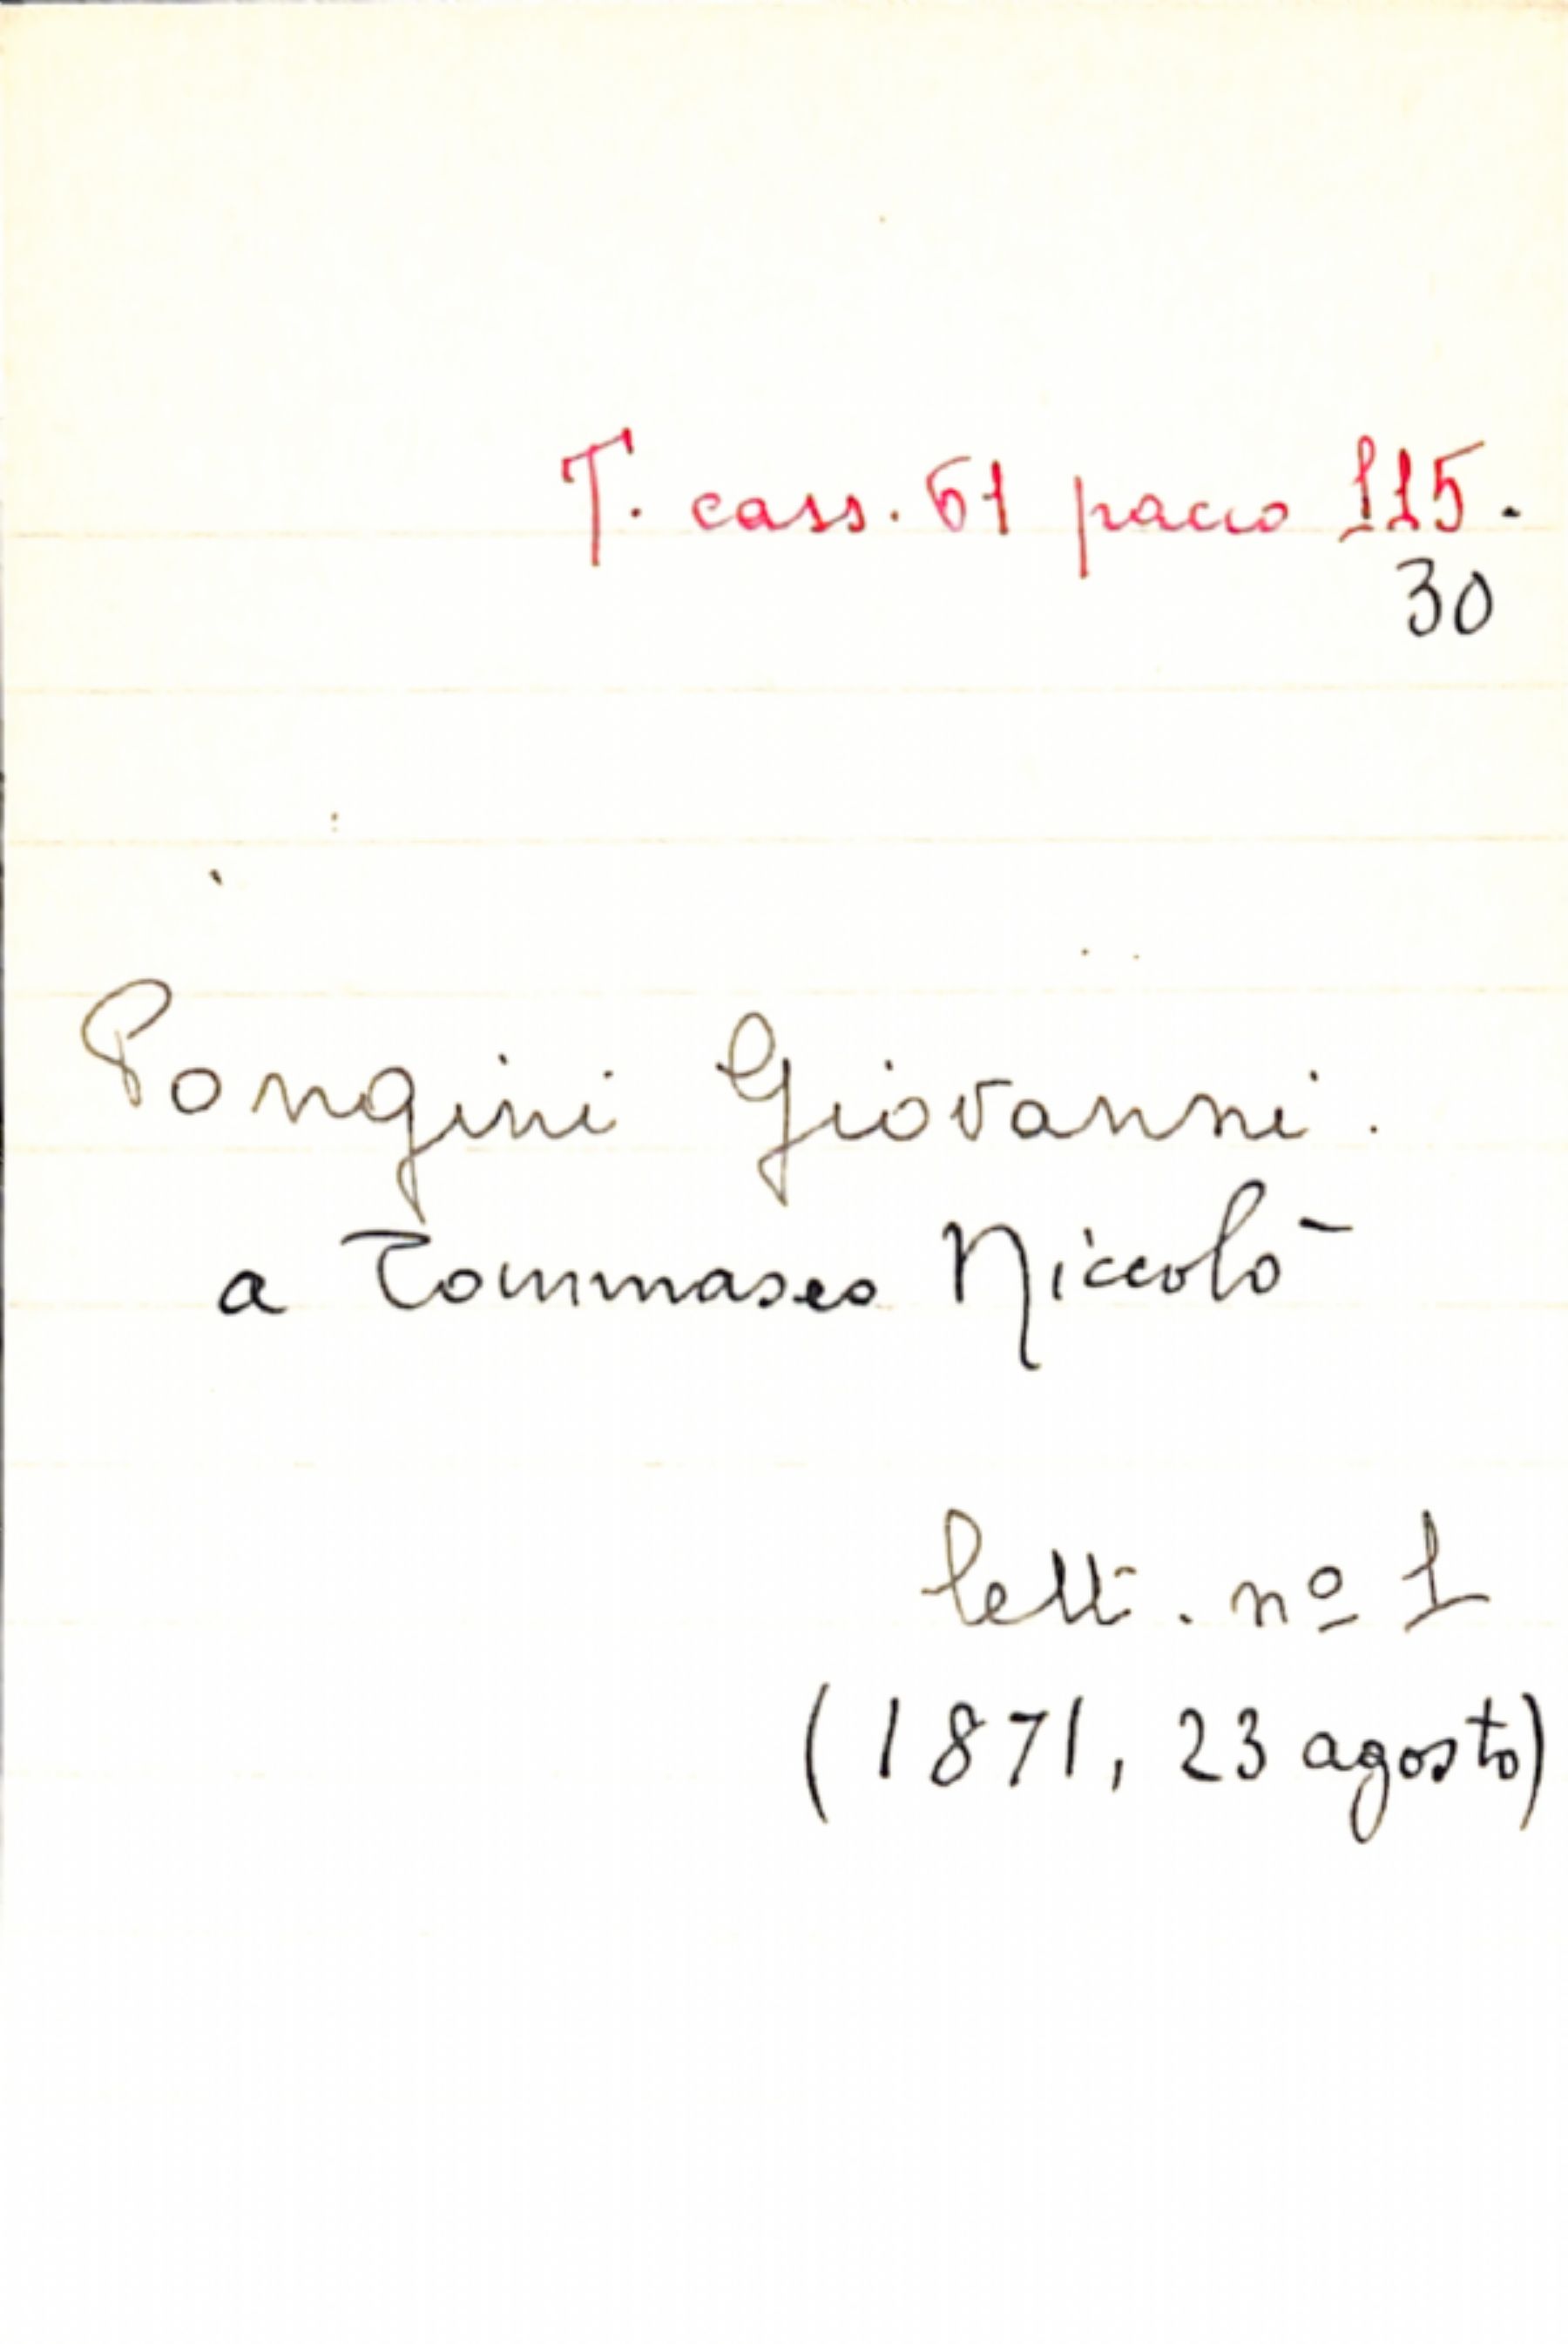 T. cass. 61 pacco 115.
30
Pongini Giovanni.
a Tommaseo Niccolò
lett. nº 1
(1871, 23 agosto)